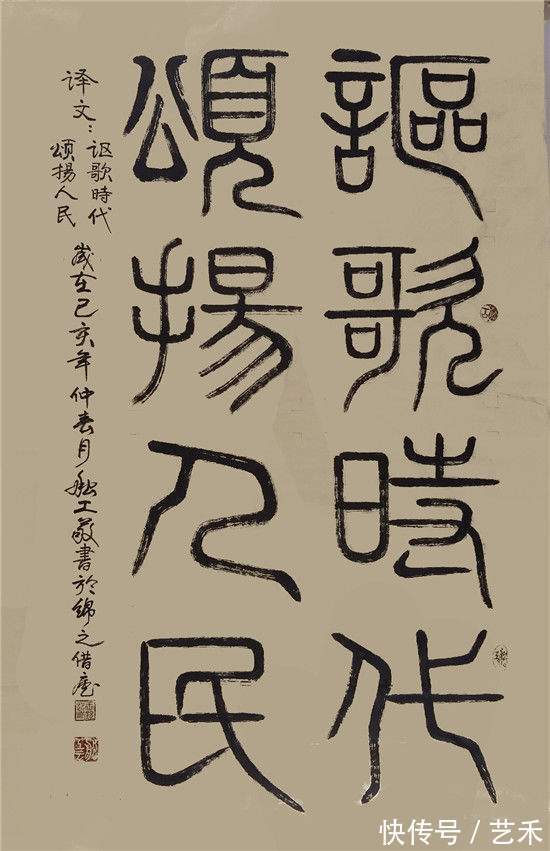 謳歌時代
頌揚人民
译文：讴歌時代
頌揚人民
歲在己亥年仲春月工敬書於綿之借廬
快传号 / 艺禾